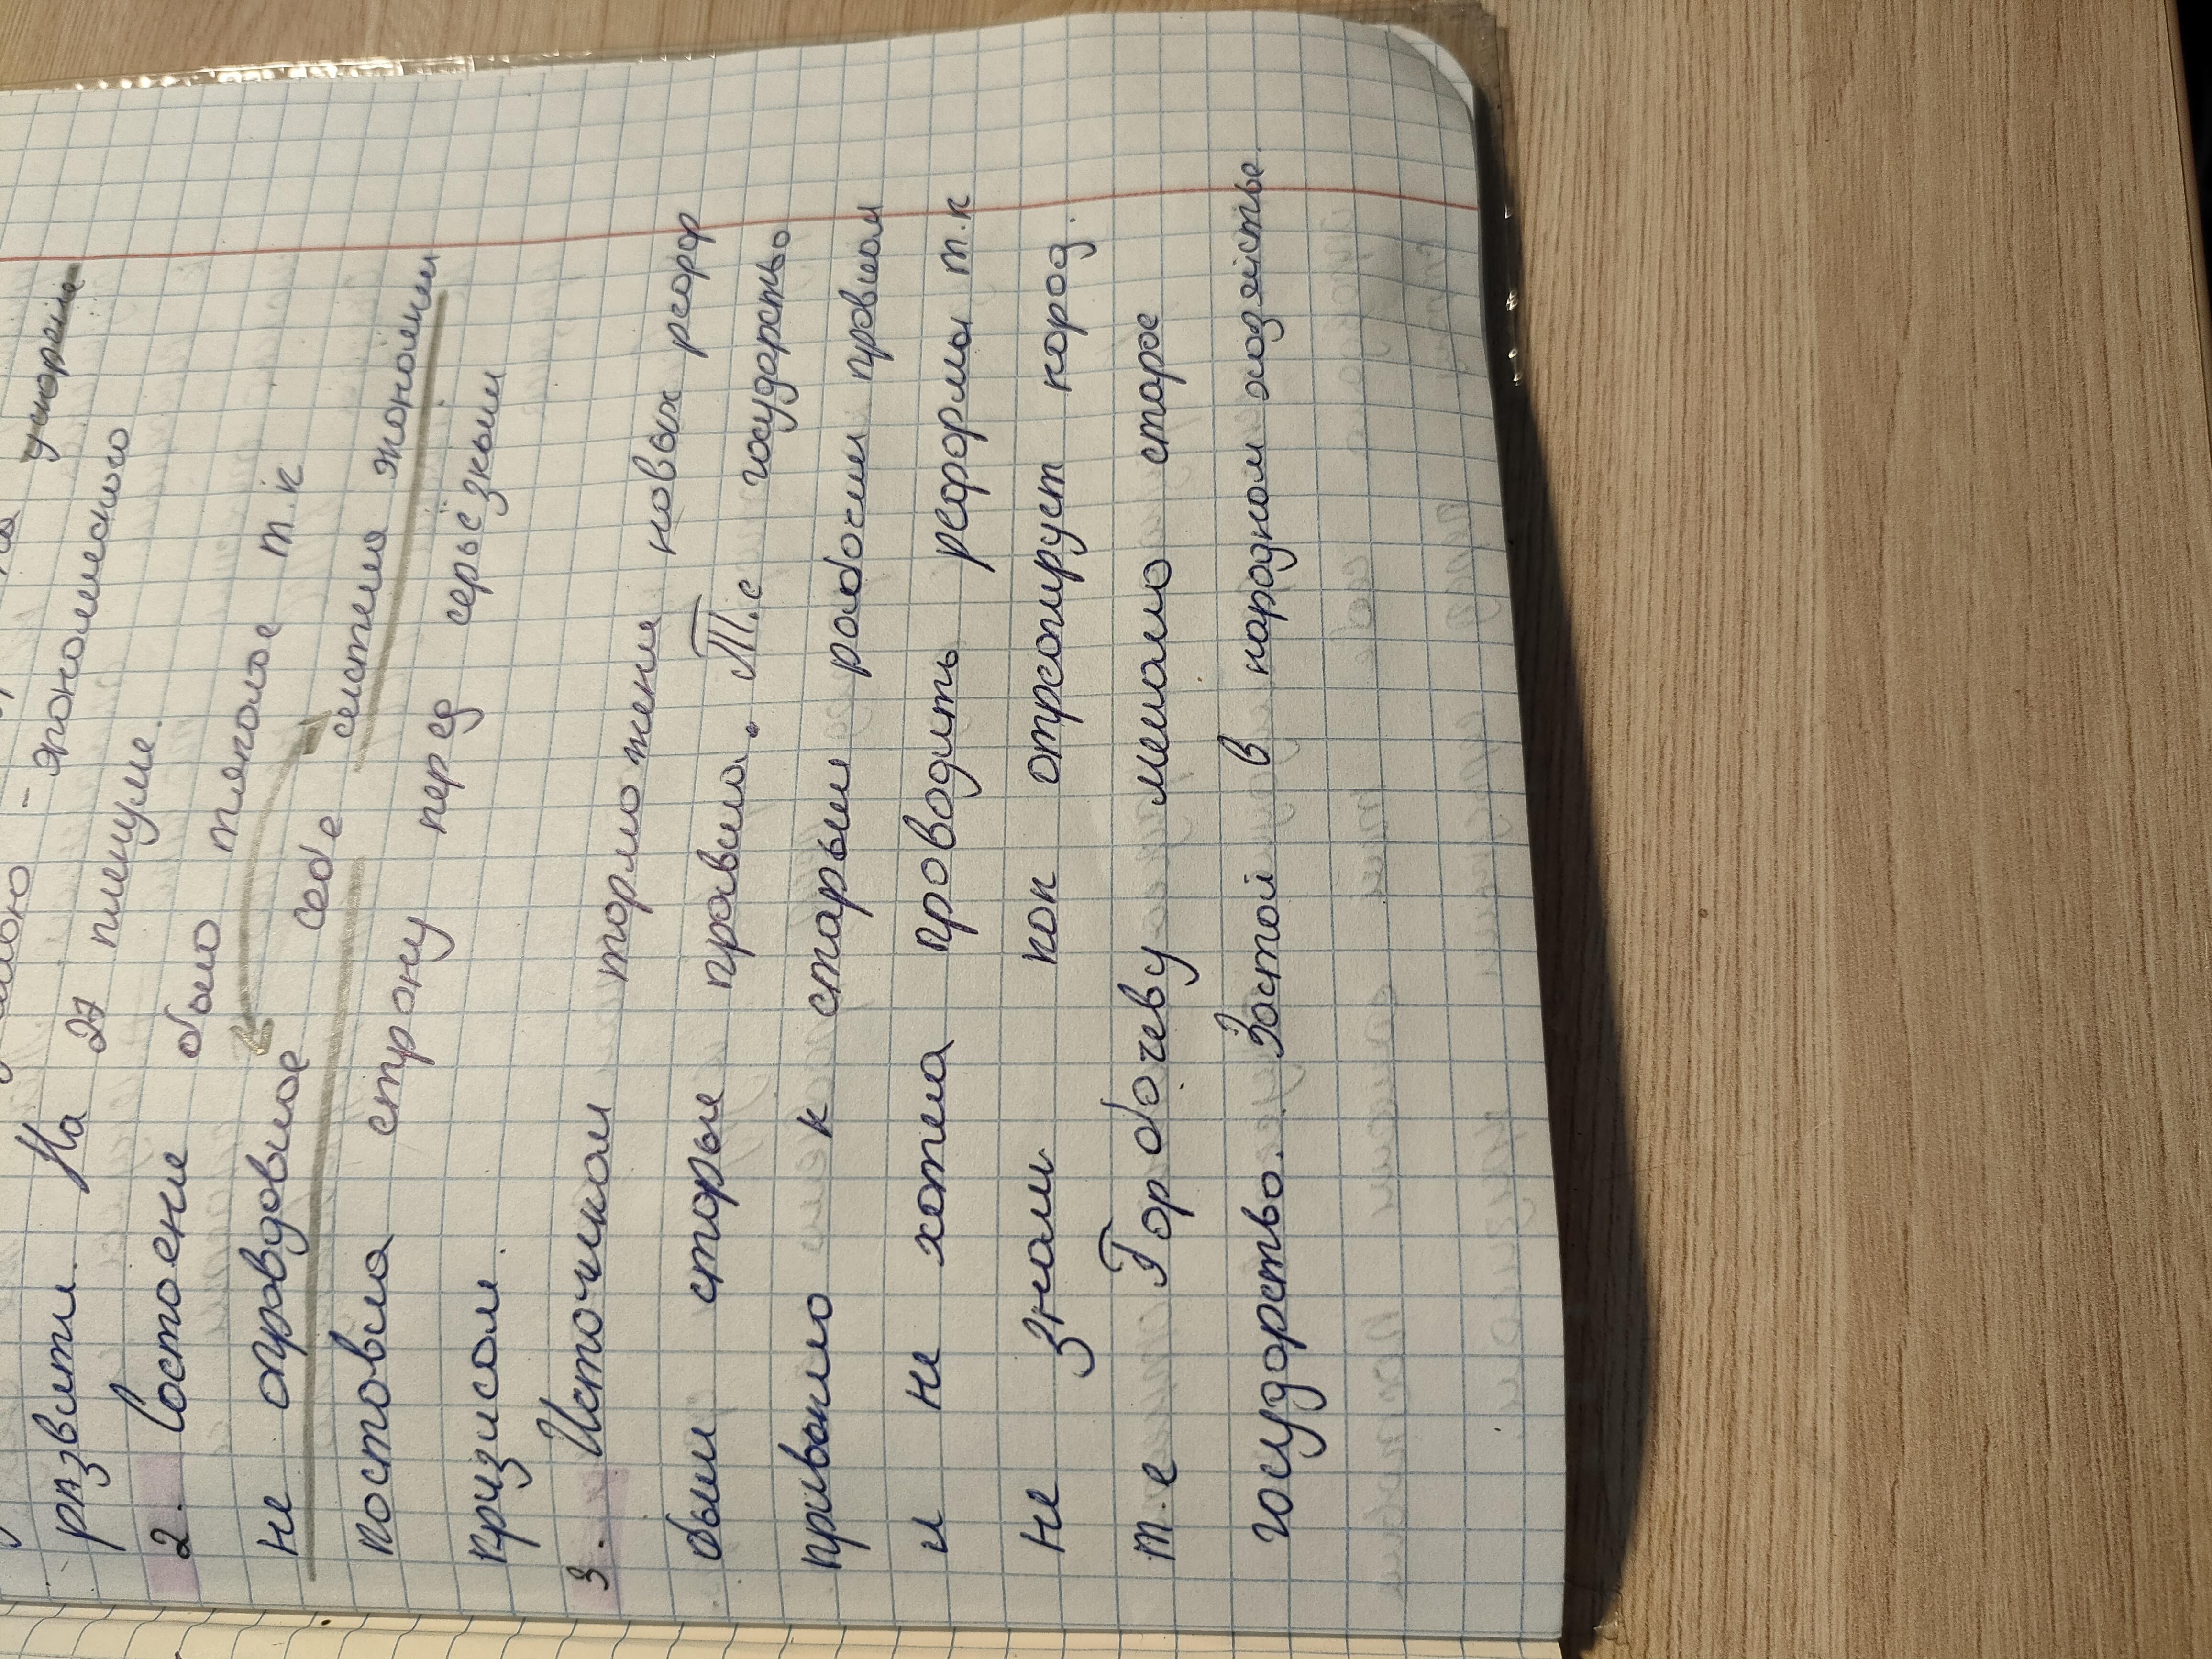 ускорение
- экономического
развити. На 27 пленуме.
2. Состоение было тяжолое т.к
не оправдовшое себе система экономики
поставила страну перед серьёзным
кризисом.
3. Источником торможени новых реформ
были старые правила. Т.е государство
привыкло к старым рабочим правилам
и не хотела проводить реформы т.к
не знали как отреагирует народ.
т.е Горбочеву мешало старое
государство. Застой в народном хозяйстве